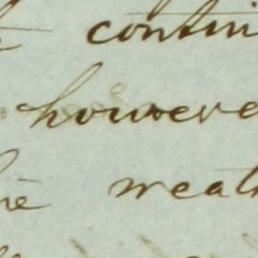 contin
however
the weath